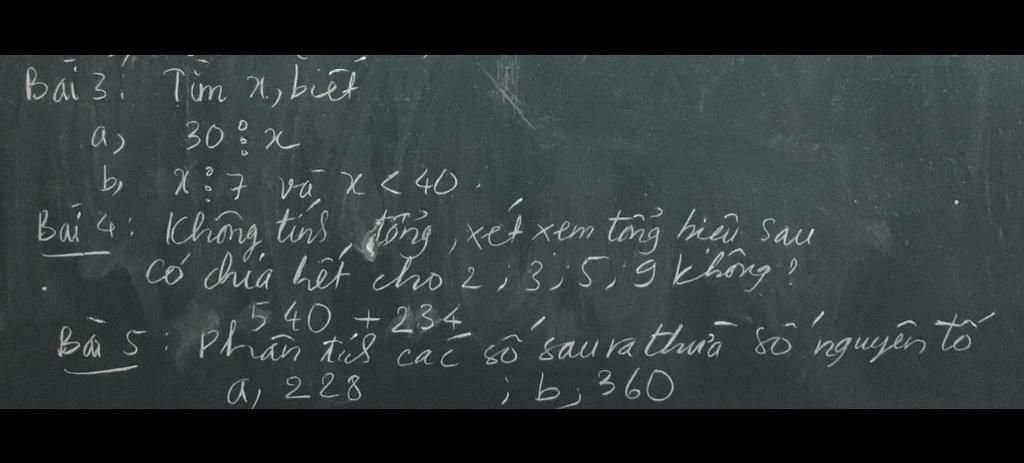 Bài 3: Tìm x, biết
a, 30 ⋮ x
b, x ⋮ 7 và x < 40.
Bài 4: Không tính tổng, xét xem tổng hiệu sau
có chia hết cho 2; 3; 5; 9 không?
540 + 234
Bài 5: Phân tích các số sau ra thừa số nguyên tố
a, 228 ; b, 360